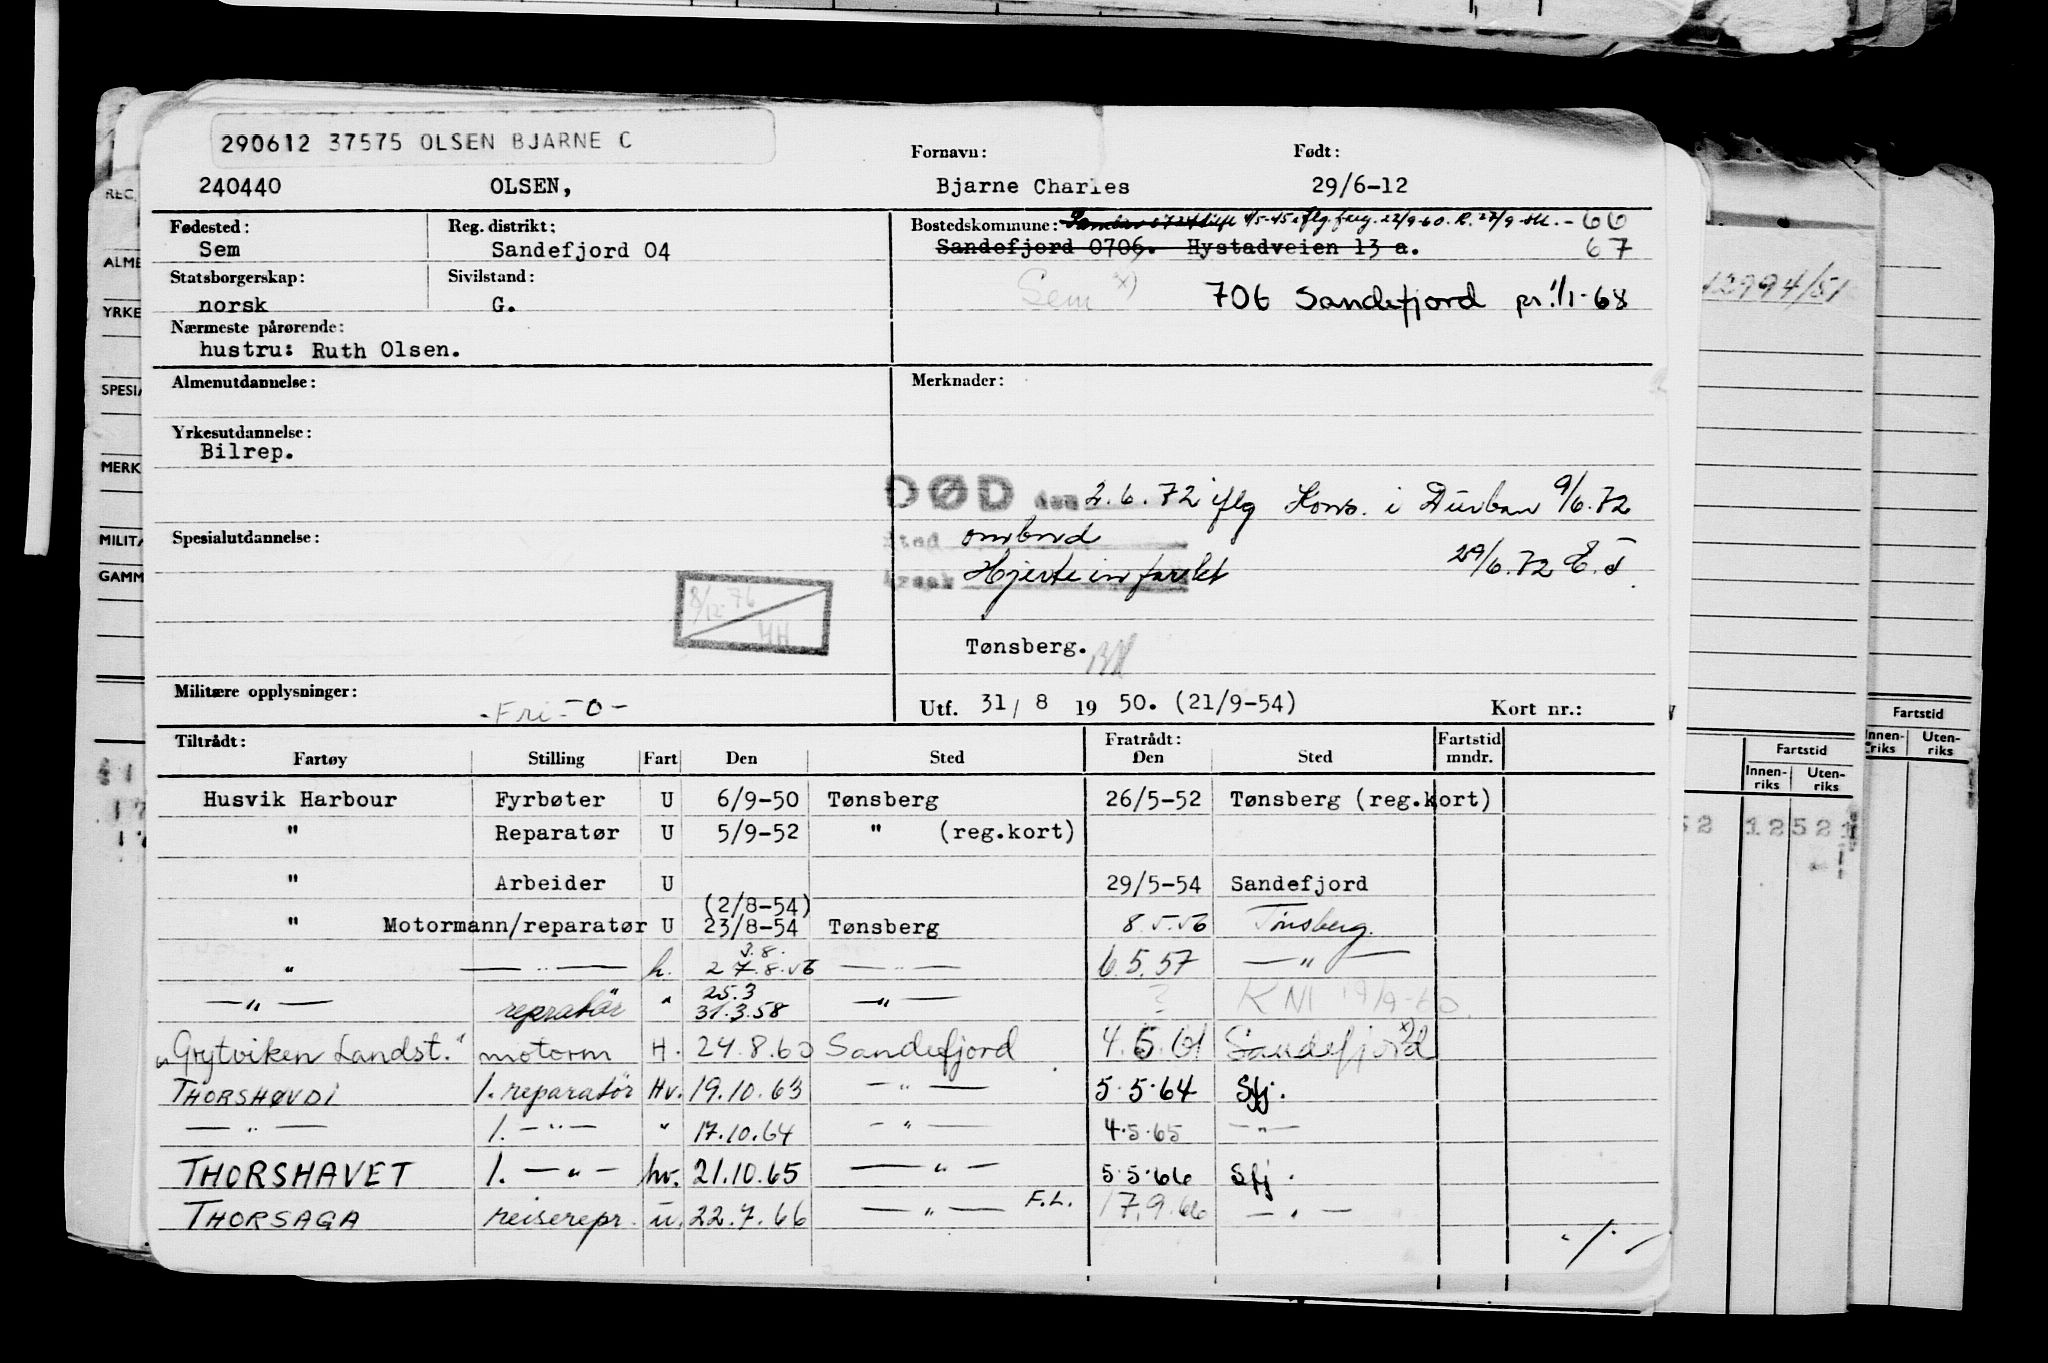 290612 37575 OLSEN BJARNE C
Fornavn: Født:
240440 OLSEN, Bjarne Charles 29/6-12
Fødested: Reg. distrikt: Bostedskommune: 4/5-45 iflg. 22/9-60. R. 22/9 - 66
Sem Sandefjord 04 Sandefjord 0706. Hystadveien 13 a. 67
Statsborgerskap: Sivilstand: Sem x) 706 Sandefjord pr. 1/1-68
norsk G.
Nærmeste pårørende:
hustru: Ruth Olsen.
Almenutdannelse: Merknader:
Yrkesutdannelse:
Bilrep.
DØD den 2.6.72 iflg Kons. i Durban 9/6.72
Sted ombord
Spesialutdannelse:
Årsak Hjerteinfarkt 29/6.72 E.J.
8/12-76
HH
Tønsberg.
Militære opplysninger: -Fri-0-
Utf. 31/ 8 19 50. (21/9-54) Kort nr.:
Tiltrådt: Fratrådt: Fartstid
Fartøy Stilling Fart Den Sted Den Sted mndr.
Husvik Harbour Fyrbøter U 6/9-50 Tønsberg 26/5-52 Tønsberg (reg.kort)
" Reparatør U 5/9-52 " (reg.kort)
" Arbeider U 29/5-54 Sandefjord
(2/8-54)
" Motormann/reparatør U 23/8-54 Tønsberg 8.5.56 Tønsberg.
3.8.
" — " — h. 27.8.56 — " — 6.5.57 — " —
25.3
— " — repratör " 31.3.58 — " — ? KNI 19/9-60.
"Grytviken Landst." motorm H. 24.8.60 Sandefjord 4.5.61 Sandefjord x)
THORSHØVDI 1. reparatör Hv. 19.10.63 — " — 5.5.64 Sfj.
— " — 1. — " — " 17.10.64 — " — 4.5.65 — " —
THORSHAVET 1. — " — hv. 21.10.65 — " — 5.5.66 Sfj.
THORSAGA reiserepr. u. 22.7.66 — " — F.L. 17.9.66 — " —
./.
REG.
ALME
YRKE
SPESIA
MERK
MILITÆ
GAMM
12994/51
Fartstid
Innen-riks Uten-riks
Fartstid
Innen-riks Uten-riks
52 12 521